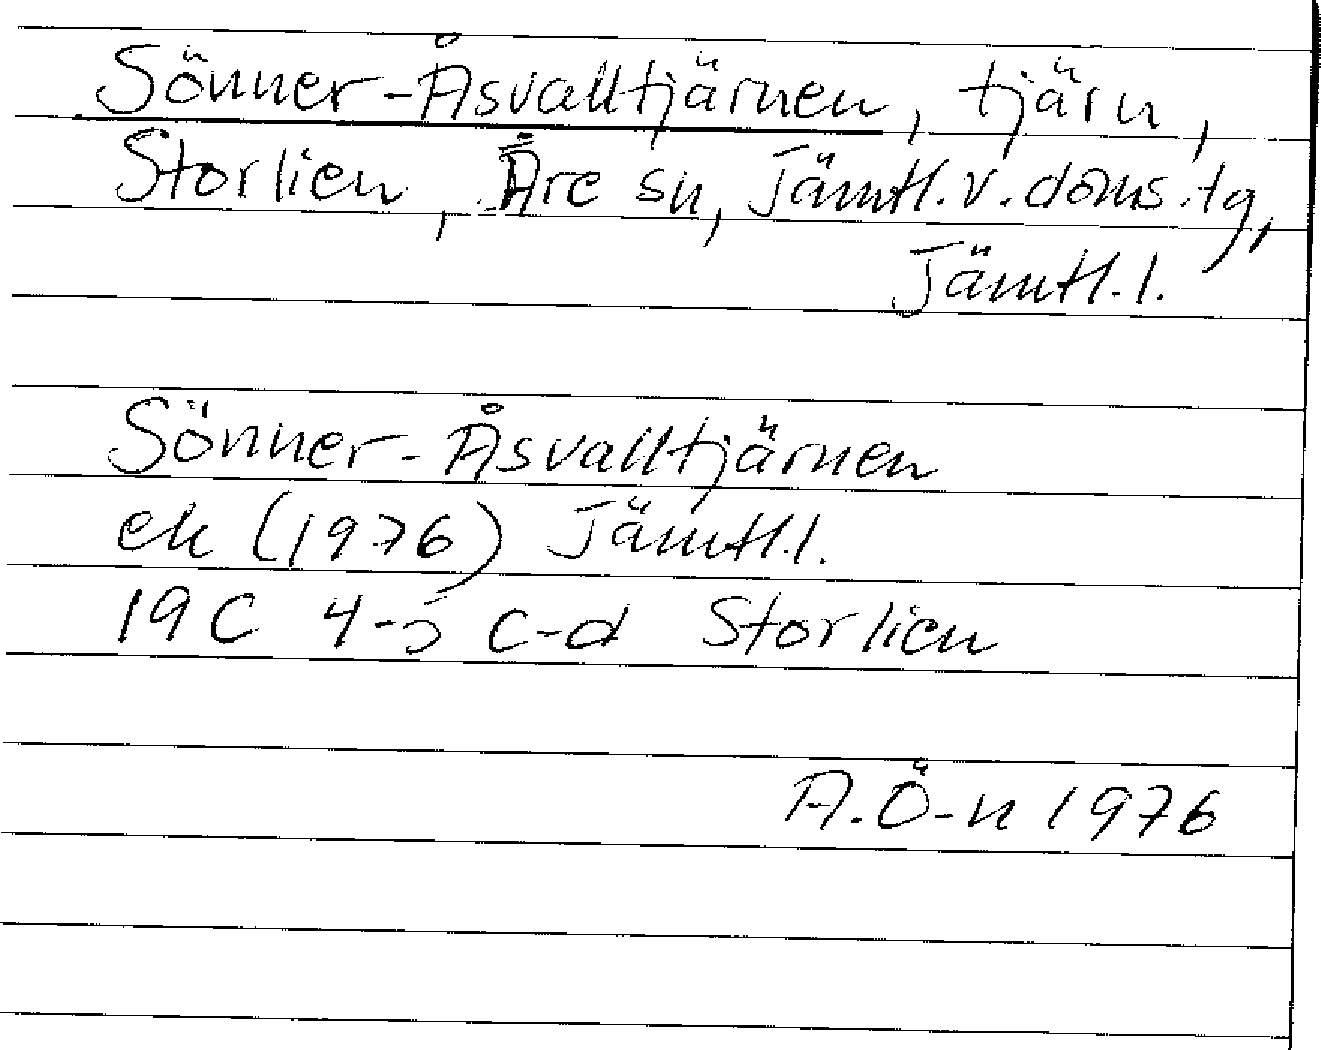 Sönner-Åsvalltjärnen, tjärn,
Storlien, Åre sn, Jämtl.v.doms.tg,
Jämtl.l.
Sönner-Åsvalltjärnen
ek (1976) Jämtl.l.
19C 4-5 c-d Storlien
A.Ö-n 1976